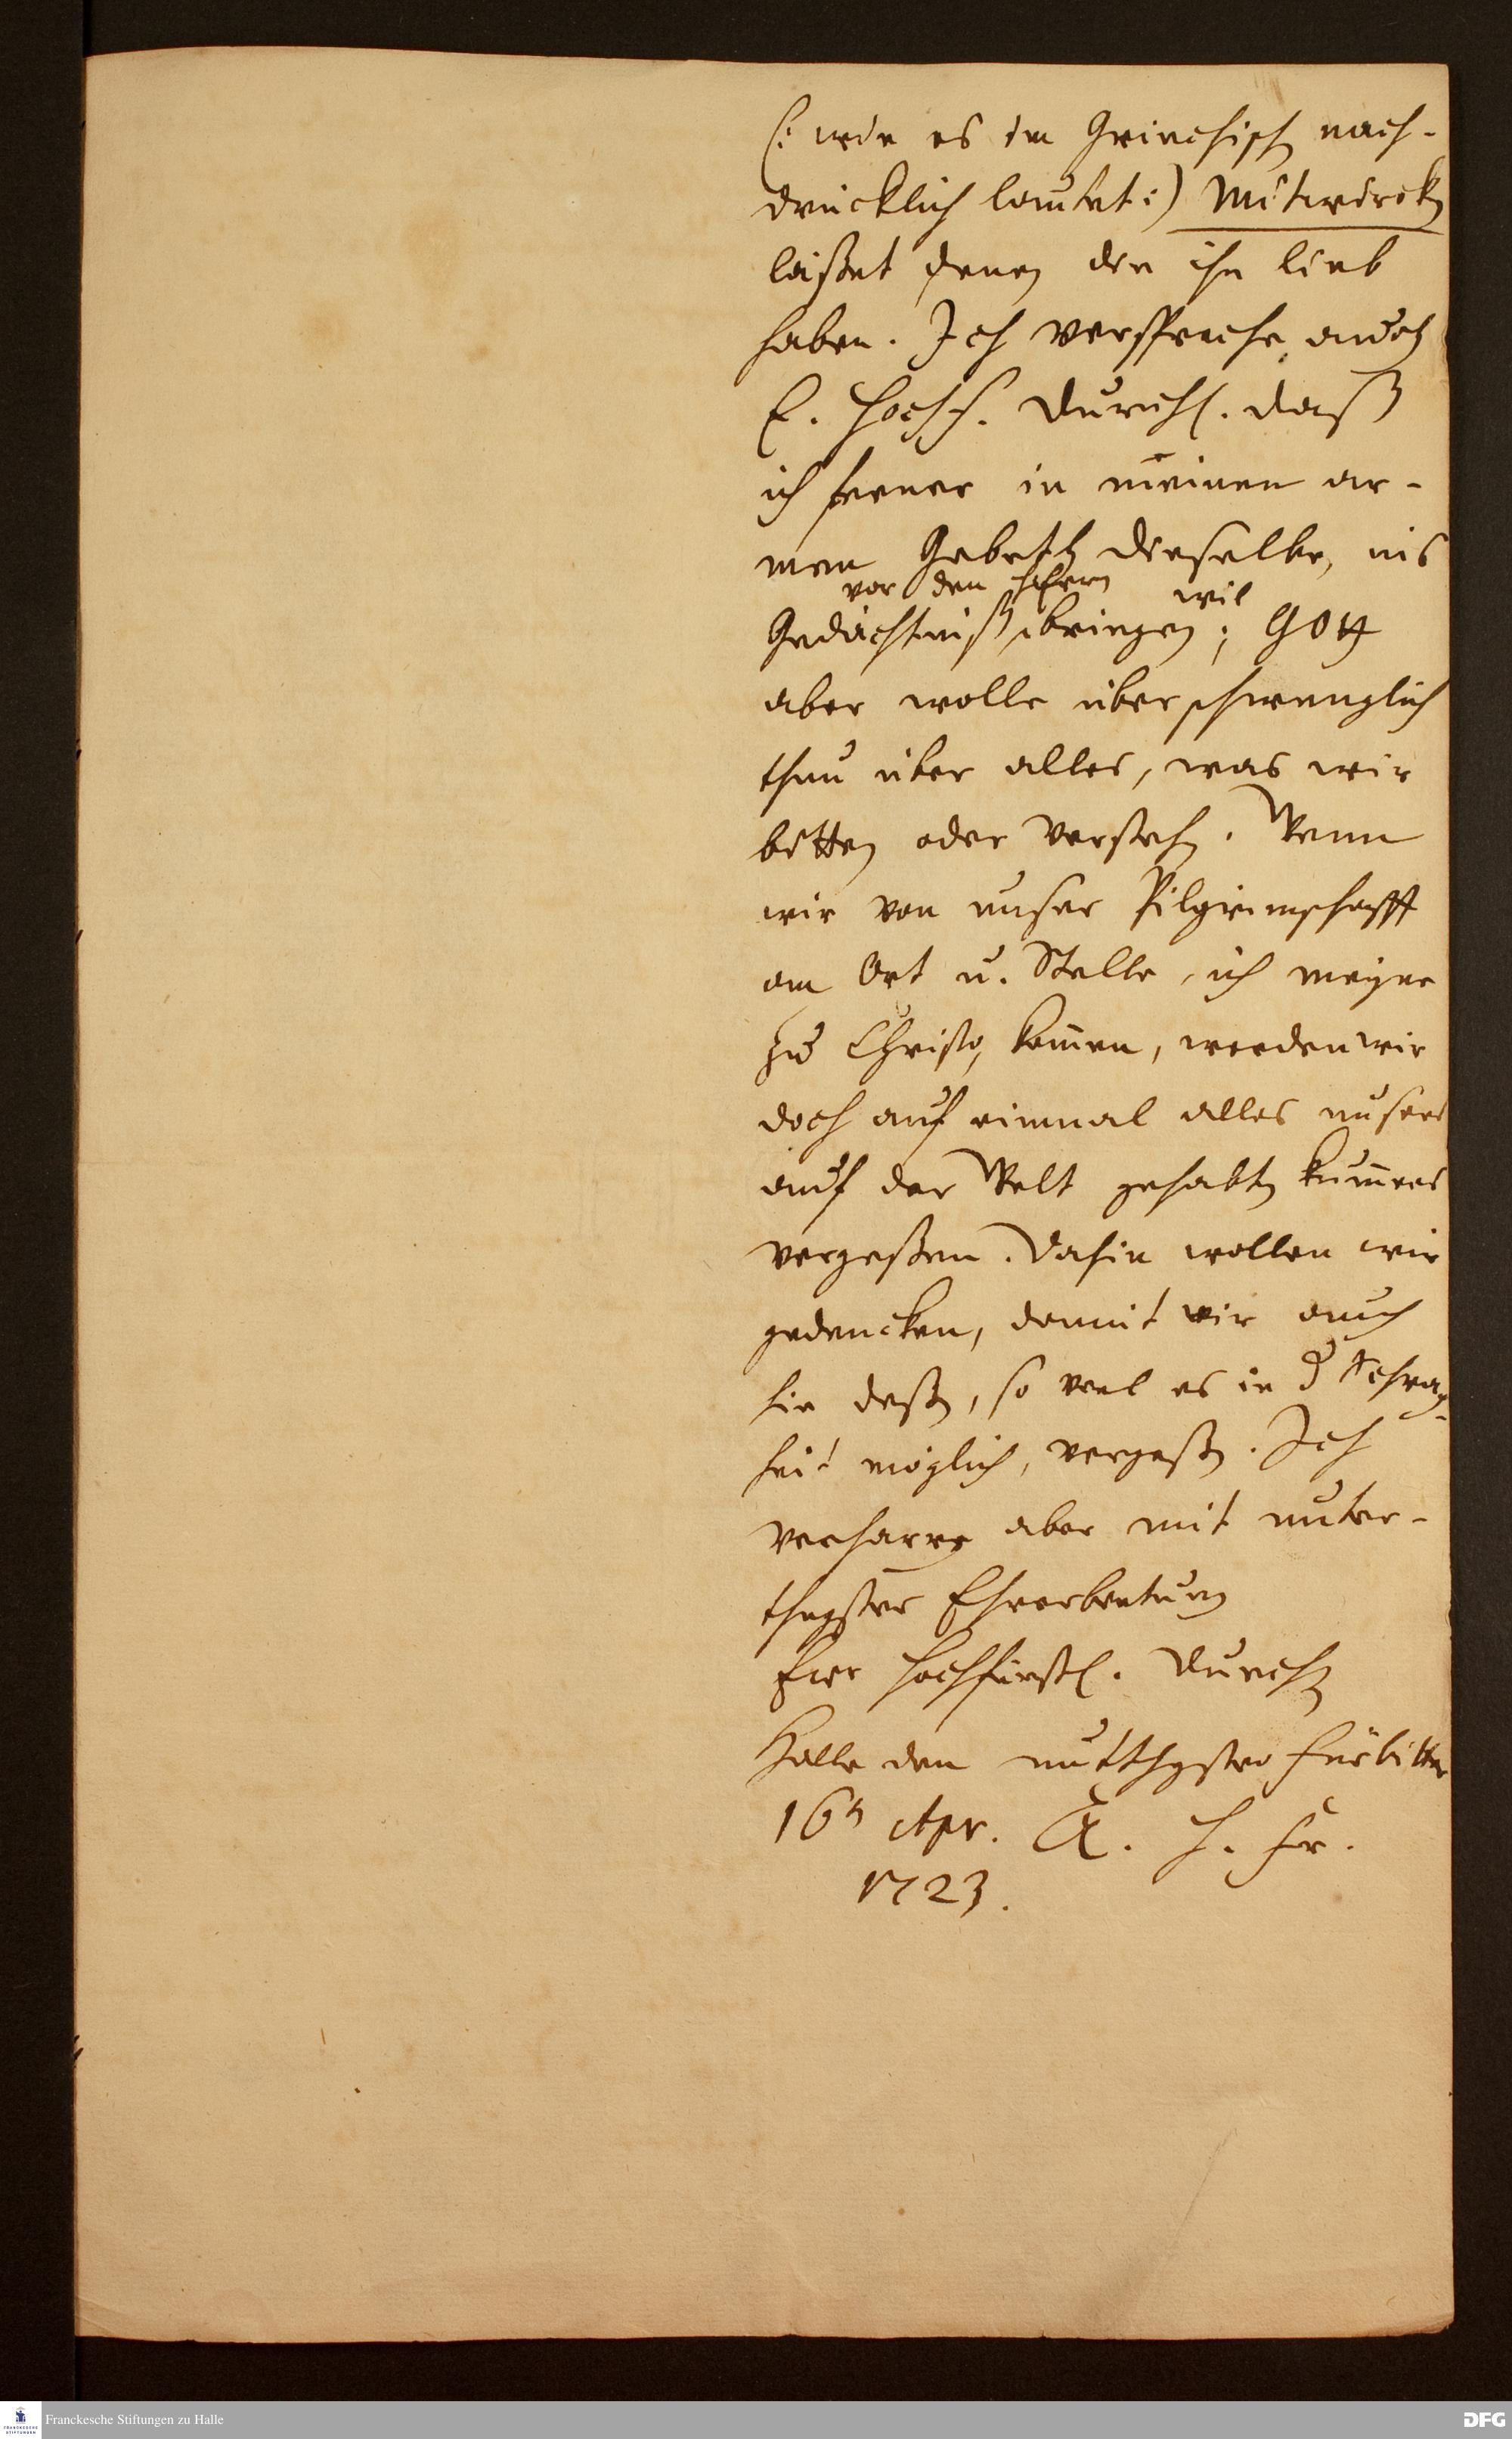 (: wie es im Griechisch nach-
drücklich lautet :) Mitwirck
läßet denen die ihn lieb
haben. Ich verspreche auch
E. Hochf. Durchl. daß
ich ferner in meinen ar-
men Gebeth dieselbe, ins
vor den HErrn wil
Gedächtniß bringen; GOtt
aber wolle überschwenglich
thun über alles, was wir
bitten oder versteh. Wenn
wir von unser Pilgrimschafft
am Ort u. Stelle, ich meyne
zu Christo, kom̄en, werden wir
doch auf einmal alles unsers
auf der Welt gehabt kum̄ers
vergeßen. Dahin wollen wir
gedencken, damit wir auch
hie deß, so viel es in d Schwach-
heit möglich, vergeß. Ich
verharre aber mit unter-
thgster Ehrerbietung
Ewr Hochfürstl. Durchl
Halle den untthgster Fürbitter
16n Apr. A. H. Fr.
1723.
Franckesche Stiftungen zu Halle
FRANCKESCHE STIFTUNGEN
DFG